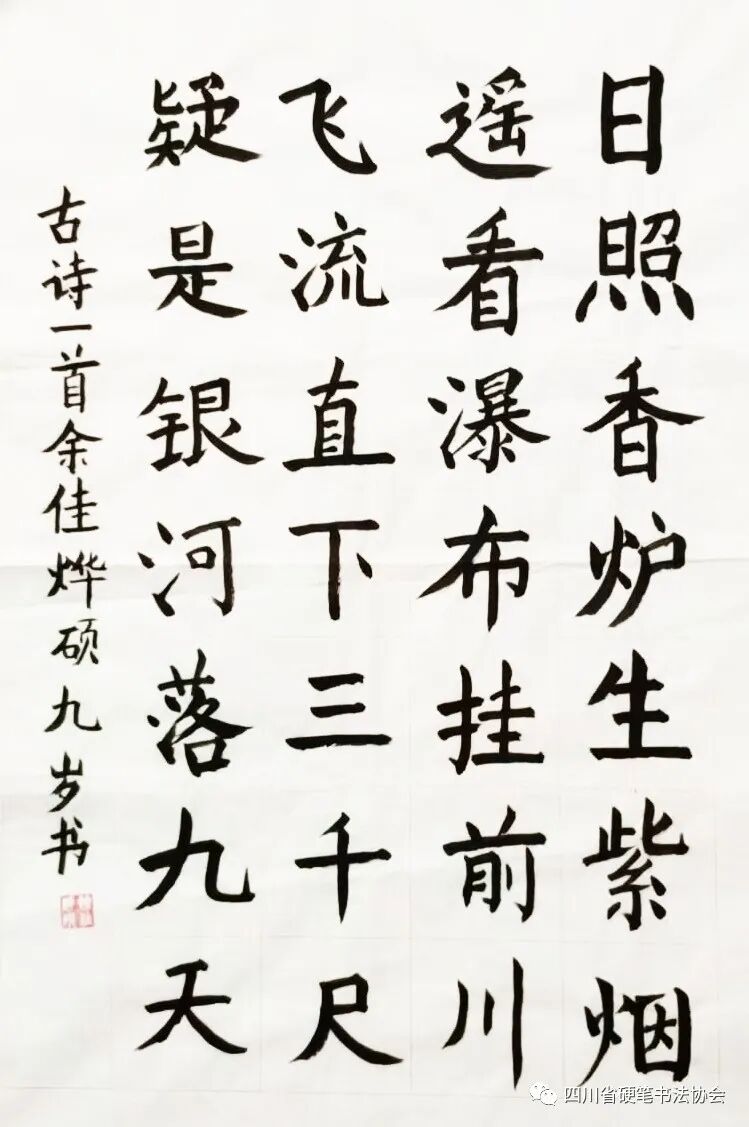 日照香炉生紫烟
遥看瀑布挂前川
飞流直下三千尺
疑是银河落九天
古诗一首余佳烨硕九岁书
四川省硬笔书法协会